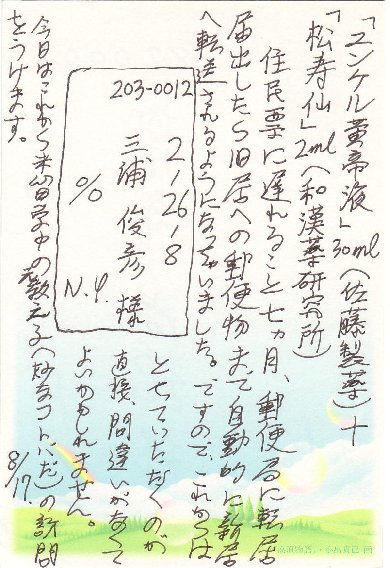 「ユンケル黄帝液」30ml(佐藤製薬)+
「松寿仙」2ml(和漢薬研究所)
住民票に遅れること七ヵ月、郵便局に転居
届出したら旧居への郵便物まで自動的に新居
へ転送されるようになっちゃいました。ですので、これからは
203-0012
2-26-8
三浦俊彦様
%
N.Y.
とせていただくのが
直接、間違いがなくて
よいかもしれません。
今日はこれから米留学中の教え子(妙なコトバだ)の訪問
をうけます。
8/17.